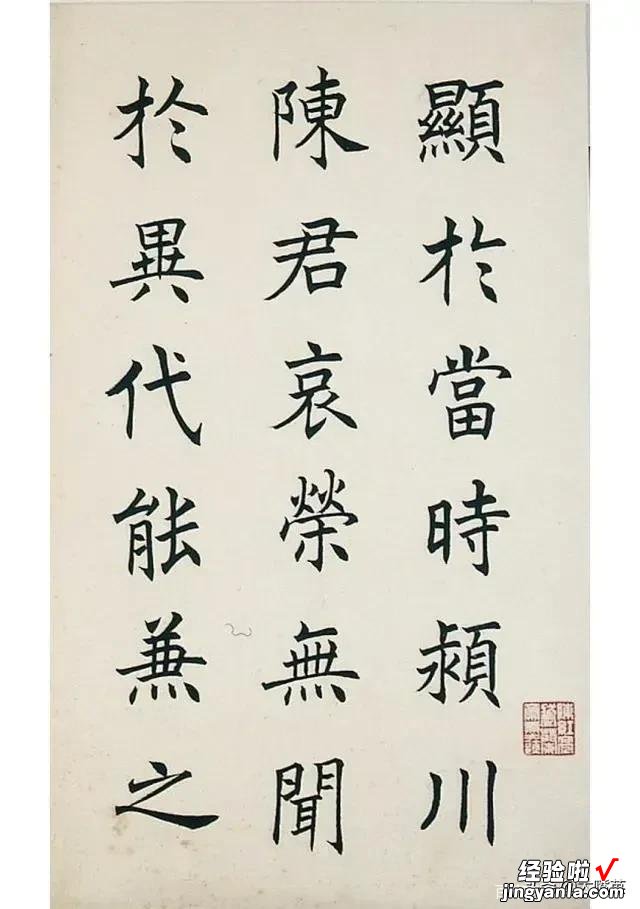 顯於當時潁川
陳君哀榮無聞
於異代能兼之
经验啦√
jingyanla.com